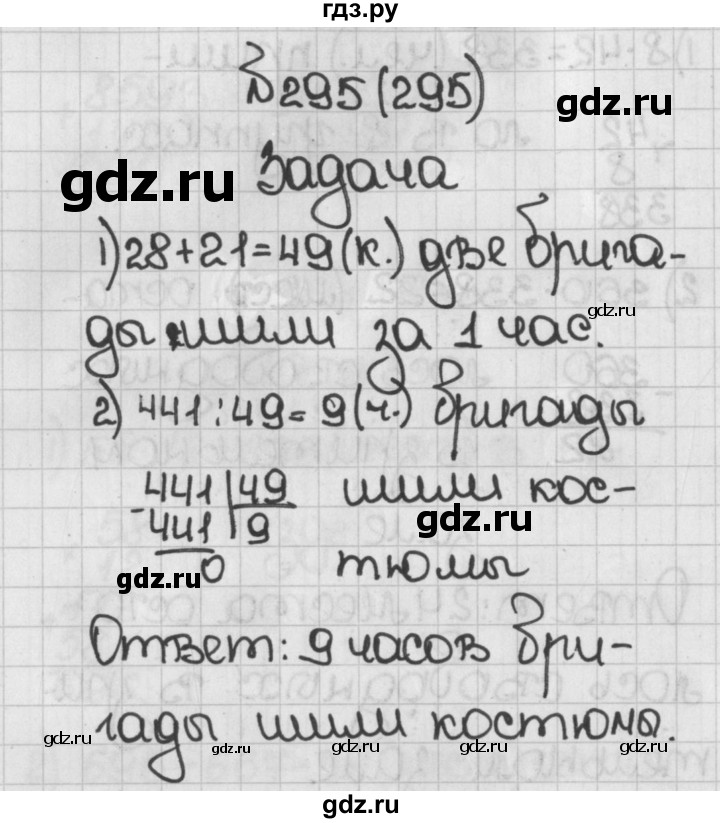 гдз.ру
№295(295)
gdz.ru
gdz.ru
Задача
1) 28+21=49(к.) две брига-
gdz.ru
ды шили за 1 час.
2) 441:49=9(ч.) бригады
441 49 шили кос-
-441 9 gdz.ru
gdz.ru 0 тюмы
Ответ: 9 часов бри-
гады шили костюмы.
gdz.ru gdz.ru gdz.ru gdz.ru
gdz.ru